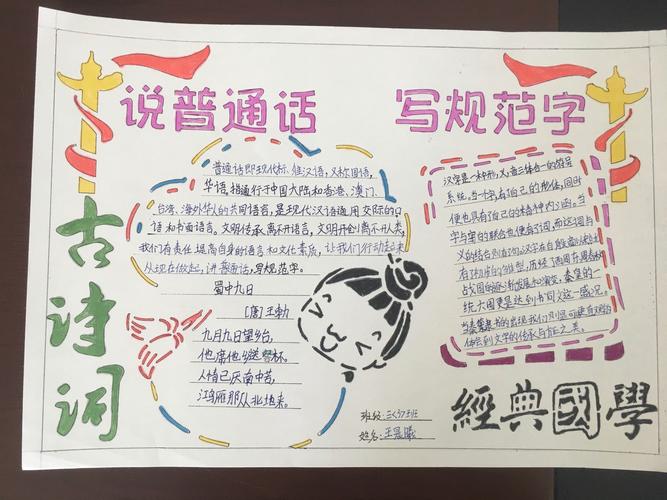 说普通话
写规范字
古诗词
普通话即现代标准汉语，又称国语，
华语，指通行于中国大陆和香港、澳门、
台湾、海外华人的共同语言，是现代汉语通用交际的口
语和书面语言，文明传承离不开语言，文明开创离不开人类，
我们有责任提高自身的语言和文化素质，让我们行动起来
从现在做起，讲普通话，写规范字。
蜀中九日
（唐）王勃
九月九日望乡台，
他席他乡送客杯。
人情已厌南中苦，
鸿雁那从北地来。
汉字是一种形、义、音三体合一的符号
系统。每个字有自己的形体，同时
便也具有自己的精神内涵。
字与字的联合也便有了词，而这词与
统六国更是达到书同文这一盛况。
体会到文字的传承与方正之美。
班级：三（7）班
姓名：王晨曦
經典國學